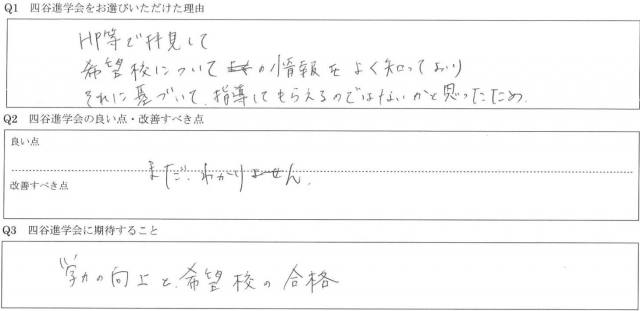 Q1 四谷進学会をお選びいただけた理由
HP等で拝見して
希望校についての情報をよく知っており
それに基づいて、指導してもらえるのではないかと思ったため.
Q2 四谷進学会の良い点・改善すべき点
良い点
まだ、わかりません.
改善すべき点
Q3 四谷進学会に期待すること
学力の向上と、希望校の合格